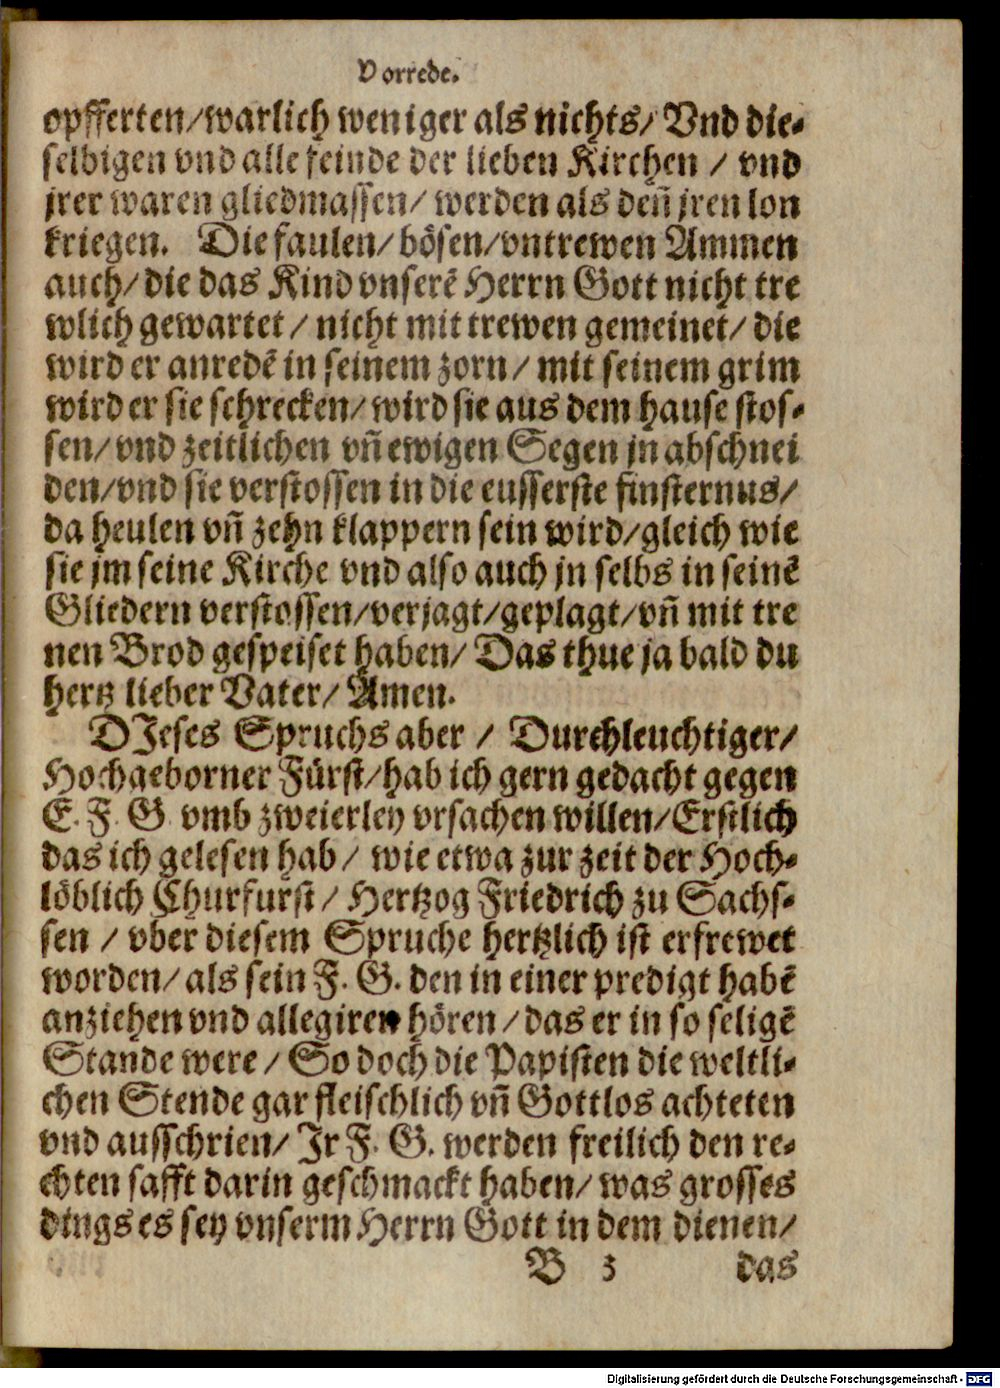 Vorrede.
opfferten/warlich weniger als nichts/ Vnd die-
selbigen vnd alle feinde der lieben Kirchen / vnd
jrer waren gliedmassen/ werden als deñ jren lon
kriegen. Die faulen/ bösen/vntrewen Ammen
auch/ die das Kind vnserẽ Herrn Gott nicht tre
wlich gewartet / nicht mit trewen gemeinet/ die
wird er anredẽ in seinem zorn / mit seinem grim
wird er sie schrecken/ wird sie aus dem hause stos-
sen/ vnd zeitlichen vñ ewigen Segen jn abschnei
den/vnd sie verstossen in die eusserste finsternus/
da heulen vñ zehn klappern sein wird/gleich wie
sie jm seine Kirche vnd also auch jn selbs in seinẽ
Gliedern verstossen/verjagt/geplagt/vñ mit tre
nen Brod gespeiset haben/ Das thue ja bald du
hertz lieber Vater/ Amen.
DJeses Spruchs aber / Durchleuchtiger/
Hochgeborner Fürst/hab ich gern gedacht gegen
E. F. G vmb zweierley vrsachen willen/Erstlich
das ich gelesen hab / wie etwa zur zeit der Hoch-
löblich Churfurst / Hertzog Friedrich zu Sachs-
sen / vber diesem Spruche hertzlich ist erfrewet
worden/ als sein F. G. den in einer predigt habẽ
anziehen vnd allegiren hören / das er in so seligẽ
Stande were / So doch die Papisten die weltli-
chen Stende gar fleischlich vñ Gottlos achteten
vnd ausschrien/ Jr F. G. werden freilich den re-
chten safft darin geschmackt haben/ was grosses
dings es sey vnserm Herrn Gott in dem dienen/
B 3 das
Digitalisierung gefördert durch die Deutsche Forschungsgemeinschaft - DFG